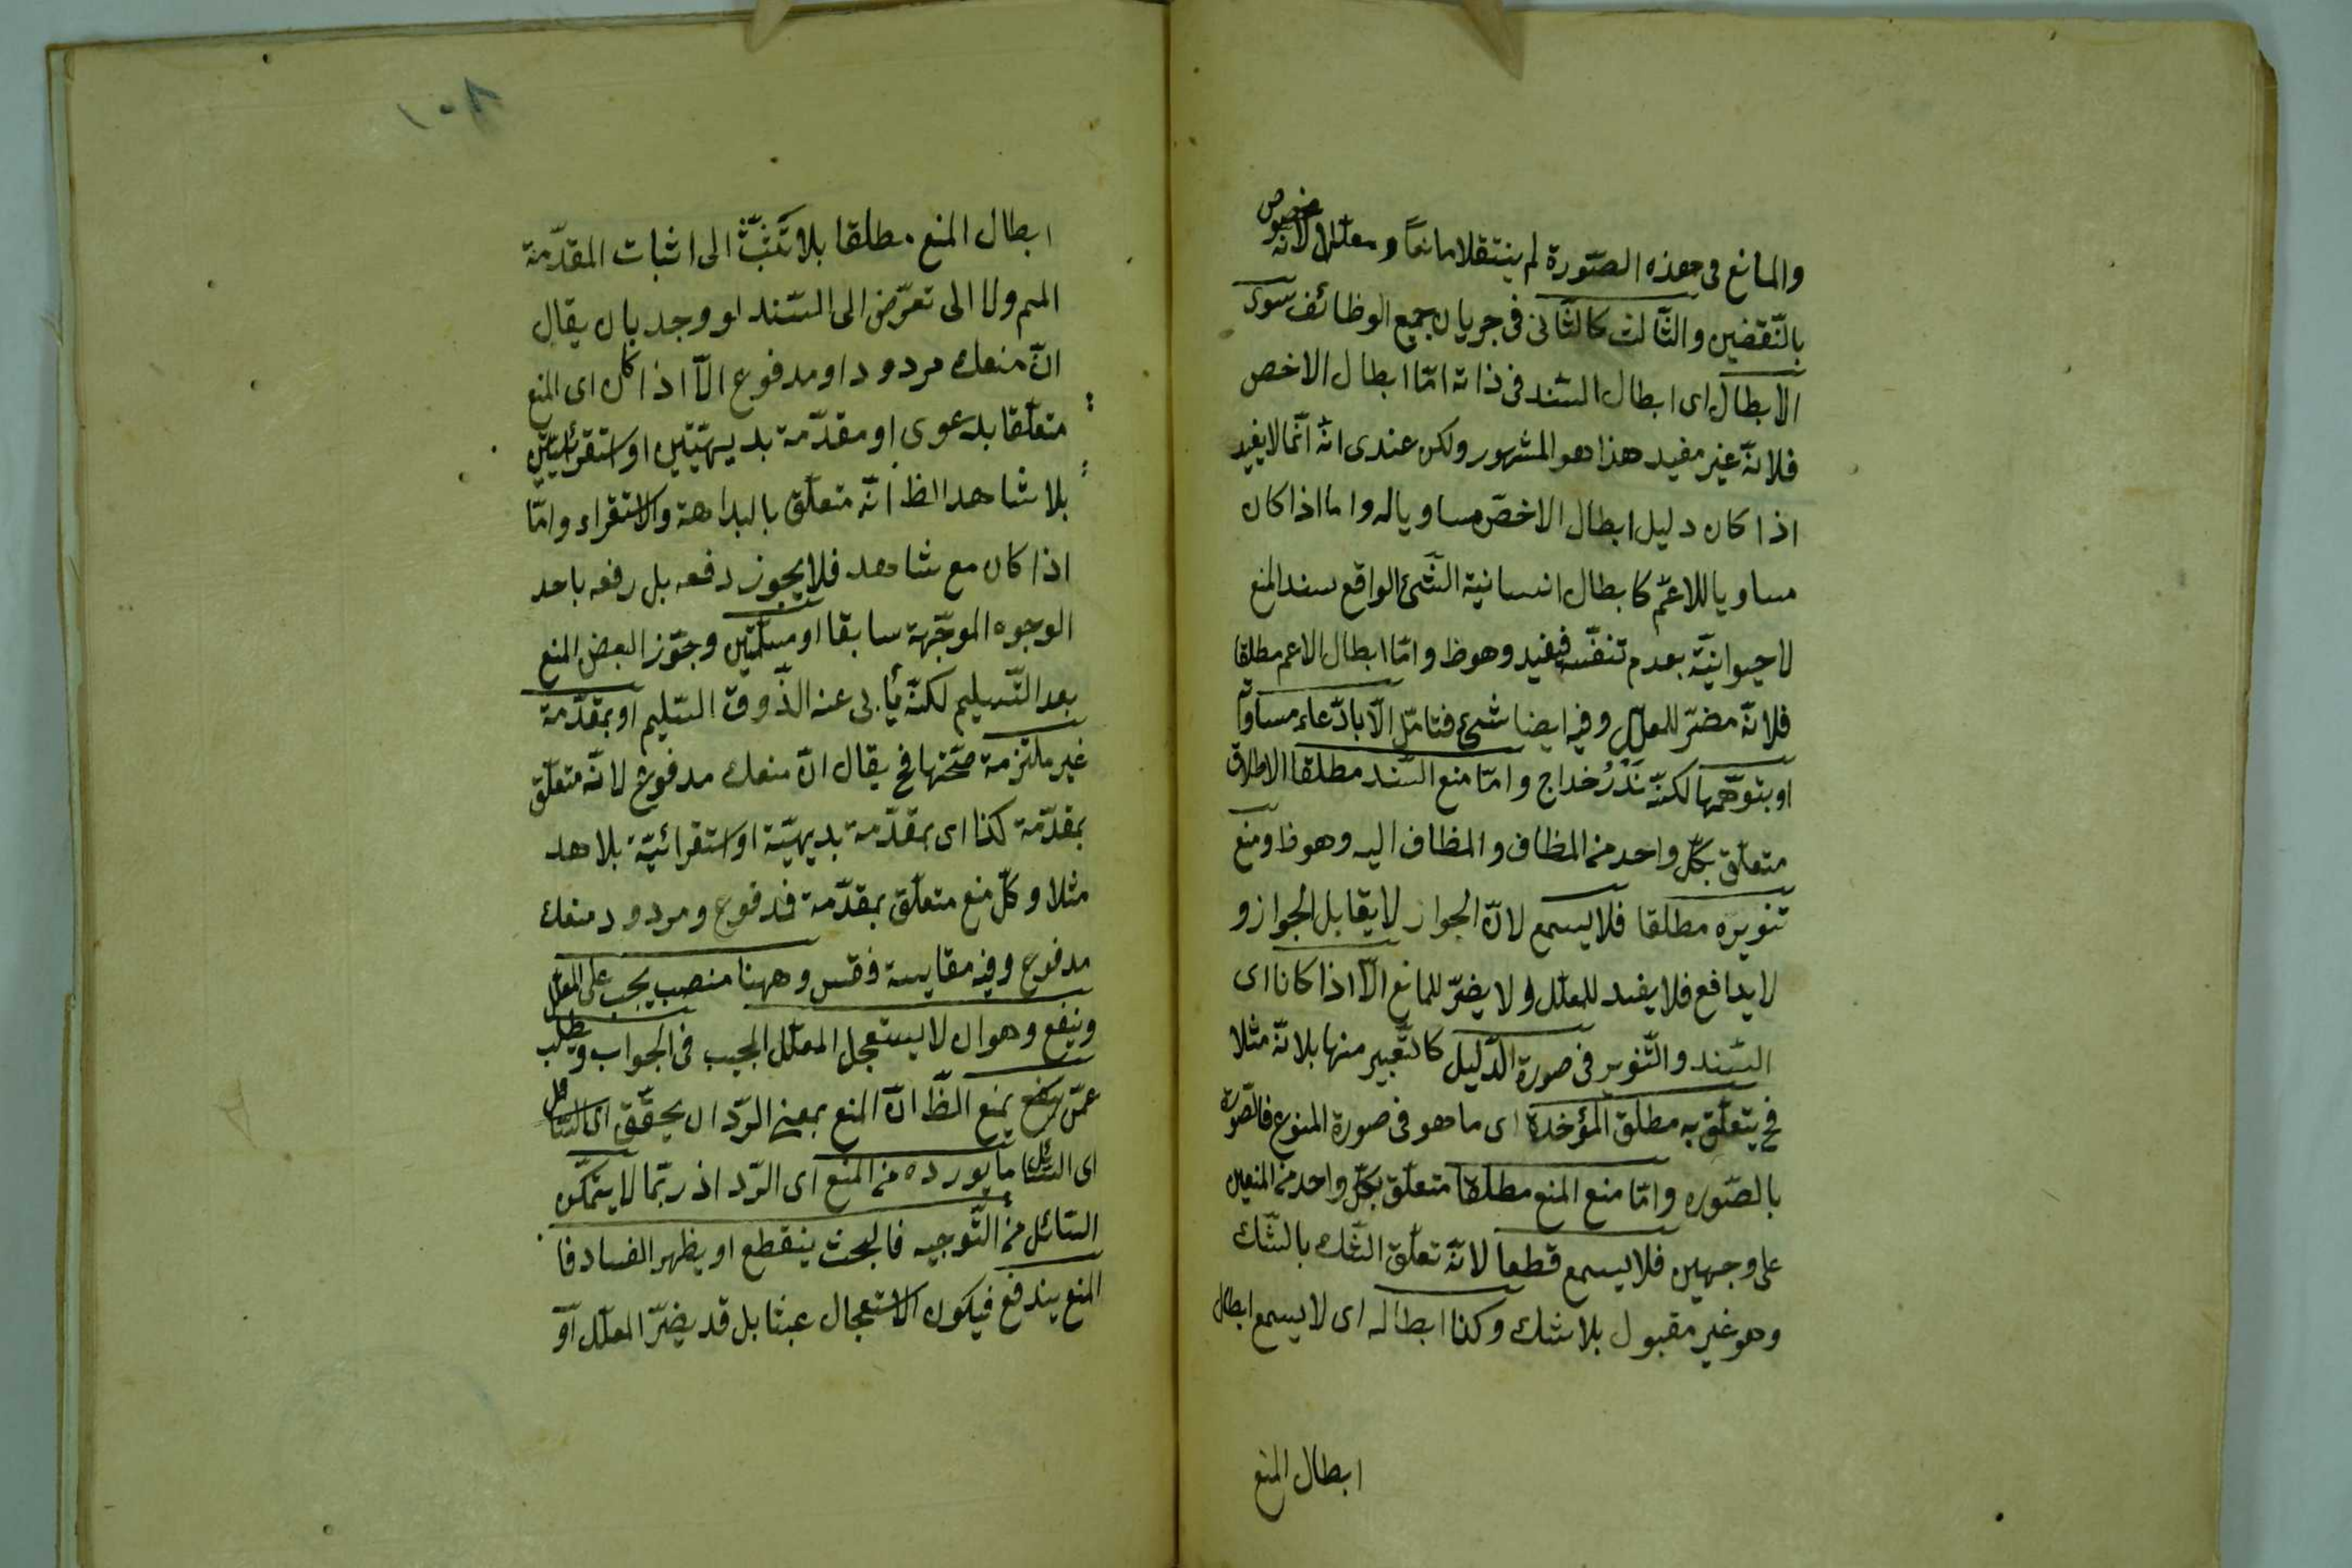 والمانع فى هذه الصّورة لم ينتقلا مانعًا ومعلّلا لانه مخصوص
بالنّقضين والثّالث كالثّانى فى جريان جميع الوظائف سوى
الابطال اى ابطال السّند فى ذاته امّا ابطال الاخص
فلانّه غير مفيد هذا هو المشهور ولكن عندى انّه انّما لا يفيد
اذا كان دليل ابطال الاخصّ مساويا له واما اذا كان
مساويا للاعمّ كابطال انسانية الشّئ الواقع سند المنع
لاحيوانيّة بعدم تنفّسه فيفيد وهوظ وامّا ابطال الاعم مطلقا
فلانّه مضرّ للمعلّل وفيه ايضا شئ فتامّل الّا بادّعاء مساواتها
او بتوهّمها لكنّه نَدُرُ خداج وامّا منع السّند مطلقا الاطلاق
متعلّق بكلّ واحد من المظاف والمظاف اليه وهوظ ومنع
تنويره مطلقا فلا يسمع لانّ الجواز لا يقابل الجواز و
لا يدافع فلا يفيد للمعلّل ولا يضرّ للمانع الّا اذا كانا اى
السّند والتّنوير فى صورة الدّليل كالتّعبير منها بلانّه مثلا
فح يتعلّق به مطلق المؤخذة اى ما هو فى صورة المنوع فالصّورة
بالصّوره وامّا منع المنع مطلقا متعلّق بكلّ واحد من المنعين
على وجهين فلا يسمع قطعا لانّه تعلّق الشّك بالشّك
وهو غير مقبول بلا شك وكذا ابطاله اى لا يسمع ابطال
ابطال المنع
ابطال المنع مطلقا بلا تَشَبُّث الى اثبات المقدّمة
المم ولا الى تعرّض الى السّند او وجد بان يقال
انّ منعك مردود او مدفوع الّا اذا كان اى المنع
متعلّقا بدعوى او مقدّمة بديهيّتين او استقرائيّتين
بلا شاهد الظ انّه متعلّق بالبداهة والاستقراء وامّا
اذا كان مع شاهد فلا يجوز دفعه بل رفعه باحد
الوجوه الموجّهة سابقا او مسلّمتين وجوّز البعض المنع
بعد التّسليم لكنّه يأبى عنه الذّوق السّليم او بمقدّمة
غير ملتزمة صحّتها فح يقال انّ منعك مدفوع لانّه متعلّق
بمقدّمة كذا اى بمقدّمة بديهيّة او استقرائيّة بلا هد
مثلا وكلّ منع متعلّق بمقدّمة فمدفوع ومردود منعك
مدفوع وفيه مقايسة فقس وههنا منصب يجب على المعلّل
وينفع وهو ان لا يستعجل المعلّل المجيب فى الجواب ويطلب
عمّن يمنع الظّ انّ المنع بمعنى الرّد ان يحقّق اى السّائل
اى السّائل ما يورده من المنع اى الرّد اذ ربّما لا يتمكّن
السّائل من التّوجيه فالبحث ينقطع او يظهر الفساد فا
المنع يندفع فيكون الاستعجال عبثا بل قد يضرّ المعلّل او